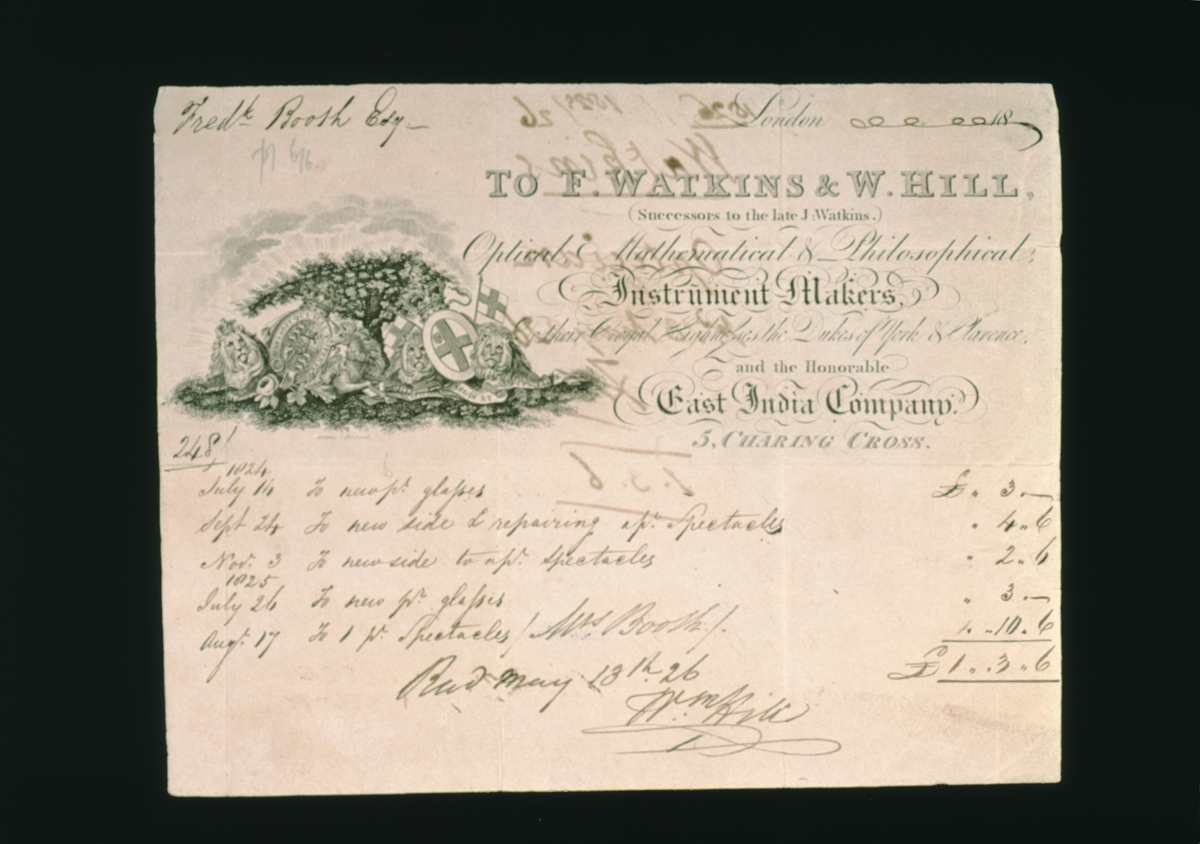 Fredk Booth Esq
London 18
TO F. WATKINS & W. HILL,
(Successors to the late J. Watkins.)
Optical, Mathematical & Philosophical,
Instrument Makers,
their Royal Highnesses the Dukes of York & Clarence,
and the Honorable
East India Company.
5, CHARING CROSS.
248/
1824
July 14 To new pr glasses £ " 3 —
Sept 24 To new side & repairing a pr Spectacles " 4 " 6
Nov. 3 To new side to a pr spectacles " 2 " 6
1825
July 26 To new pr glasses " 3 —
Augt 17 To 1 pr Spectacles (Mrs Booth). " 10 " 6
£ 1 " 3 " 6
Recd May 13th 26
Wm Hill